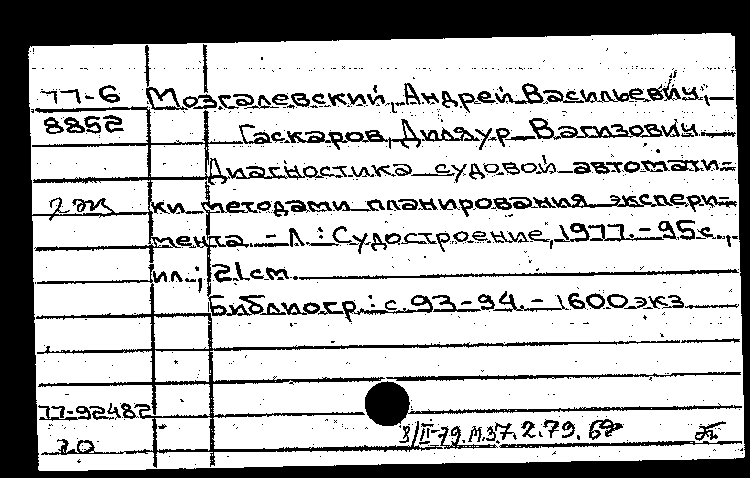 77-6 Мозгалевский, Андрей Васильевич,
8852 Гаскаров, Диляур Вагизович
Диагностика судовой автомати=
2 эк ки методами планирования экспери=
мента - Л.: Судостроение, 1977. - 95с.,
ил.; 21см.
Библиогр.: с. 93-94. - 1600 экз
77-92482
20 8/II-79. М.37. 2.79.